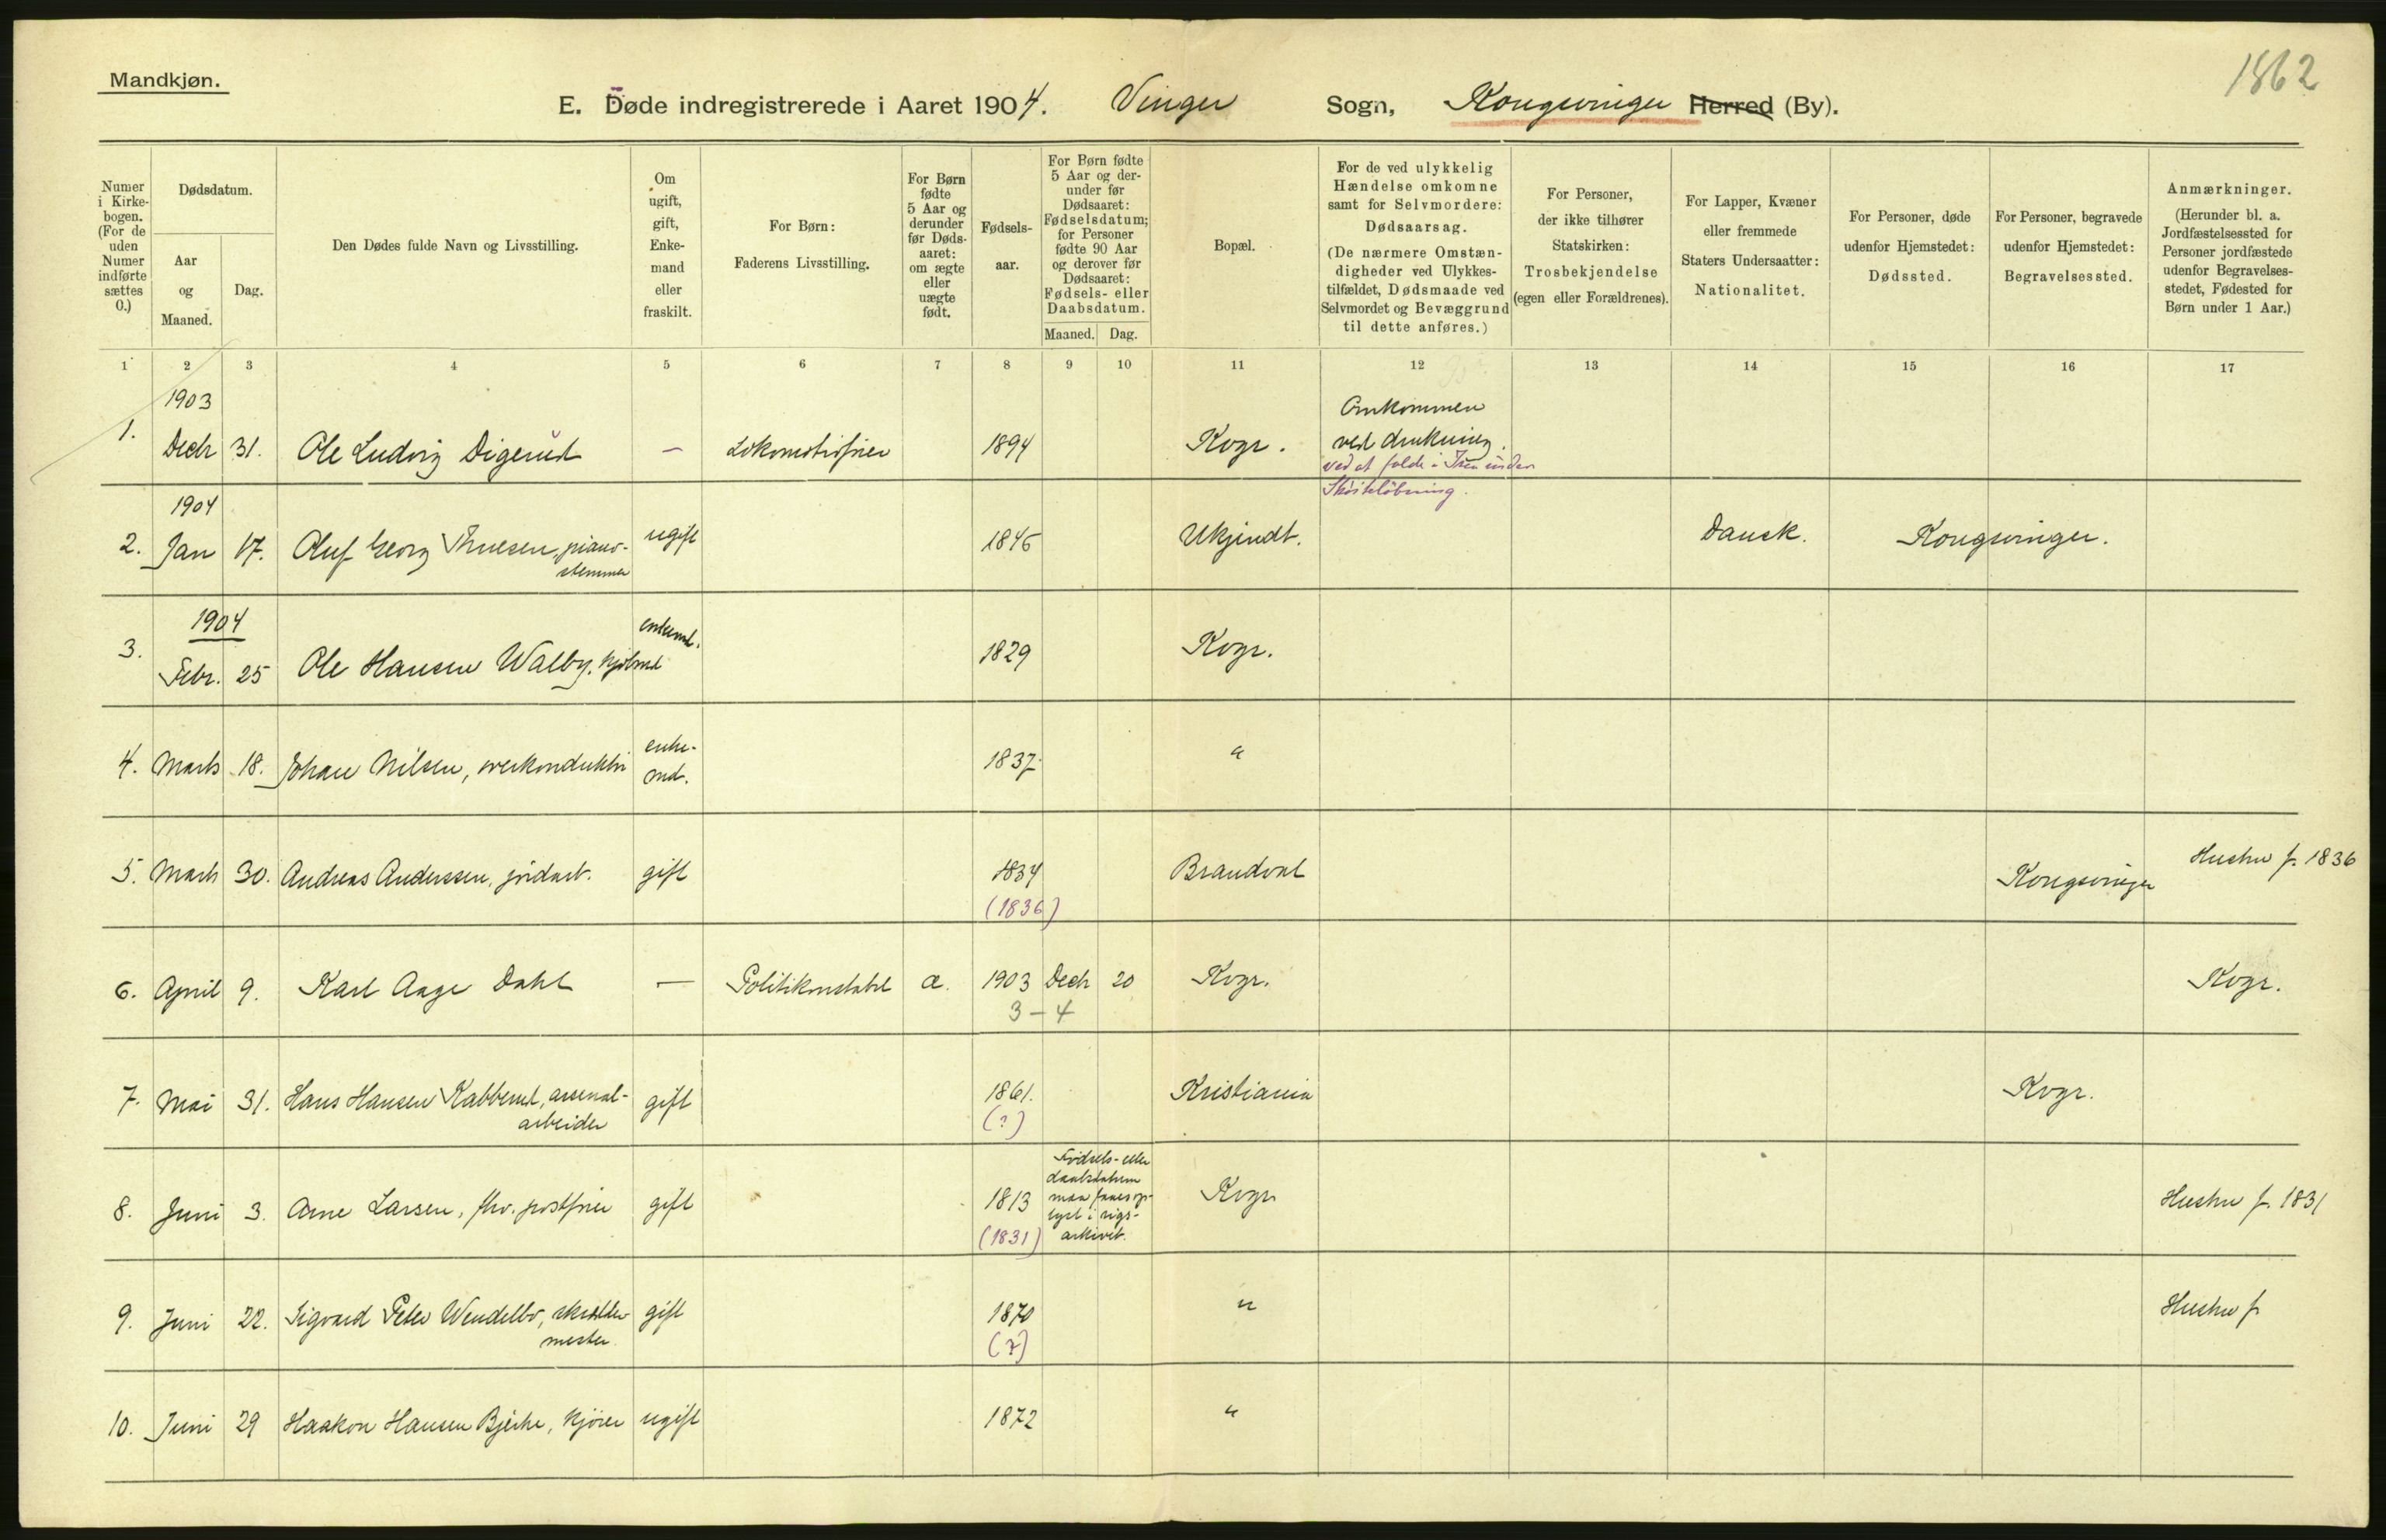 1862
Mandkjøn.
E. Døde indregistrerede i Aaret 1904. Vinger Sogn, Kongsvinger Herred (By).
Numer
i Kirke-
bogen.
(For de
uden
Numer
indførte
sættes
0.)
Dødsdatum.
Aar
og
Maaned.
Dag.
Den Dødes fulde Navn og Livsstilling.
Om
ugift,
gift,
Enke-
mand
eller
fraskilt.
For Børn:
Faderens Livsstilling.
For Børn
fødte
5 Aar og
derunder
før Døds-
aaret:
om ægte
eller
uægte
født.
Fødsels-
aar.
For Børn fødte
5 Aar og der-
under før
Dødsaaret:
Fødselsdatum;
for Personer
fødte 90 Aar
og derover før
Dødsaaret:
Fødsels- eller
Daabsdatum.
Maaned. Dag.
Bopæl.
For de ved ulykkelig
Hændelse omkomne
samt for Selvmordere:
Dødsaarsag.
(De nærmere Omstæn-
digheder ved Ulykkes-
tilfældet, Dødsmaade ved
Selvmordet og Bevæggrund
til dette anføres.)
For Personer,
der ikke tilhører
Statskirken:
Trosbekjendelse
(egen eller Forældrenes).
For Lapper, Kvæner
eller fremmede
Staters Undersaatter:
Nationalitet.
For Personer, døde
udenfor Hjemstedet:
Dødssted.
For Personer, begravede
udenfor Hjemstedet:
Begravelsessted.
Anmærkninger.
(Herunder bl. a.
Jordfæstelsessted for
Personer jordfæstede
udenfor Begravelses-
stedet, Fødested for
Børn under 1 Aar.)
1 2 3 4 5 6 7 8 9 10 11 12 13 14 15 16 17
1903
Omkommen
1. Decbr 31. Ole Ludvig Digerud — Lokomotivfører 1894 Kvgr. ved drukning.
ved at falde i Isen under
Skøiteløbning.
1904
2. Jan 17. Oluf Georg Thuesen, piano- ugift 1846 Ukjendt. Dansk. Kongsvinger.
stemmer
1904
3. Febr. 25 Ole Hansen Walby, enkemd. 1829 Kvgr.
4. Marts 18. Johan Nilsen, overkonduktør enke- 1837 "
md.
5. Marts 30. Andreas Anderssen, jordarb. gift 1834 Brandval Kongsvinger Hustru f. 1836
(1836)
6. April 9. Karl Aage Dahl — Politikonstabel æ. 1903 Decbr 20 Kvgr. Kvgr.
3 – 4
7. Mai 31. Hans Hansen Kabberud, arsenal- gift 1861. Kristiania Kvgr.
arbeider (?)
8. Juni 3. Arne Larsen, fhv. postfører gift 1813 Kvgr Hustru f. 1831
(1831)
Fødsels- eller
daabsdatum
maa faaes op-
lyst i rigs-
arkivet.
9. Juni 22. Sigvard Peter Wendelbo, skrædder gift 1870 " Hustru f.
mester. (?)
10. Juni 29 Haakon Hansen Bjerke, kjører ugift 1872 "